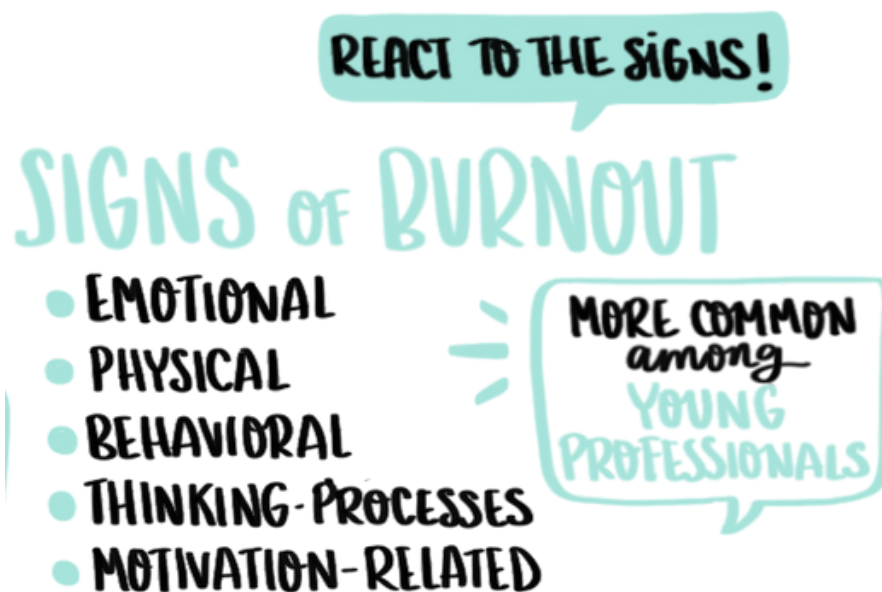 REACT TO THE SIGNS!
SIGNS OF BURNOUT
EMOTIONAL
PHYSICAL
BEHAVIORAL
THINKING-PROCESSES
MOTIVATION-RELATED
MORE COMMON
among
YOUNG
PROFESSIONALS